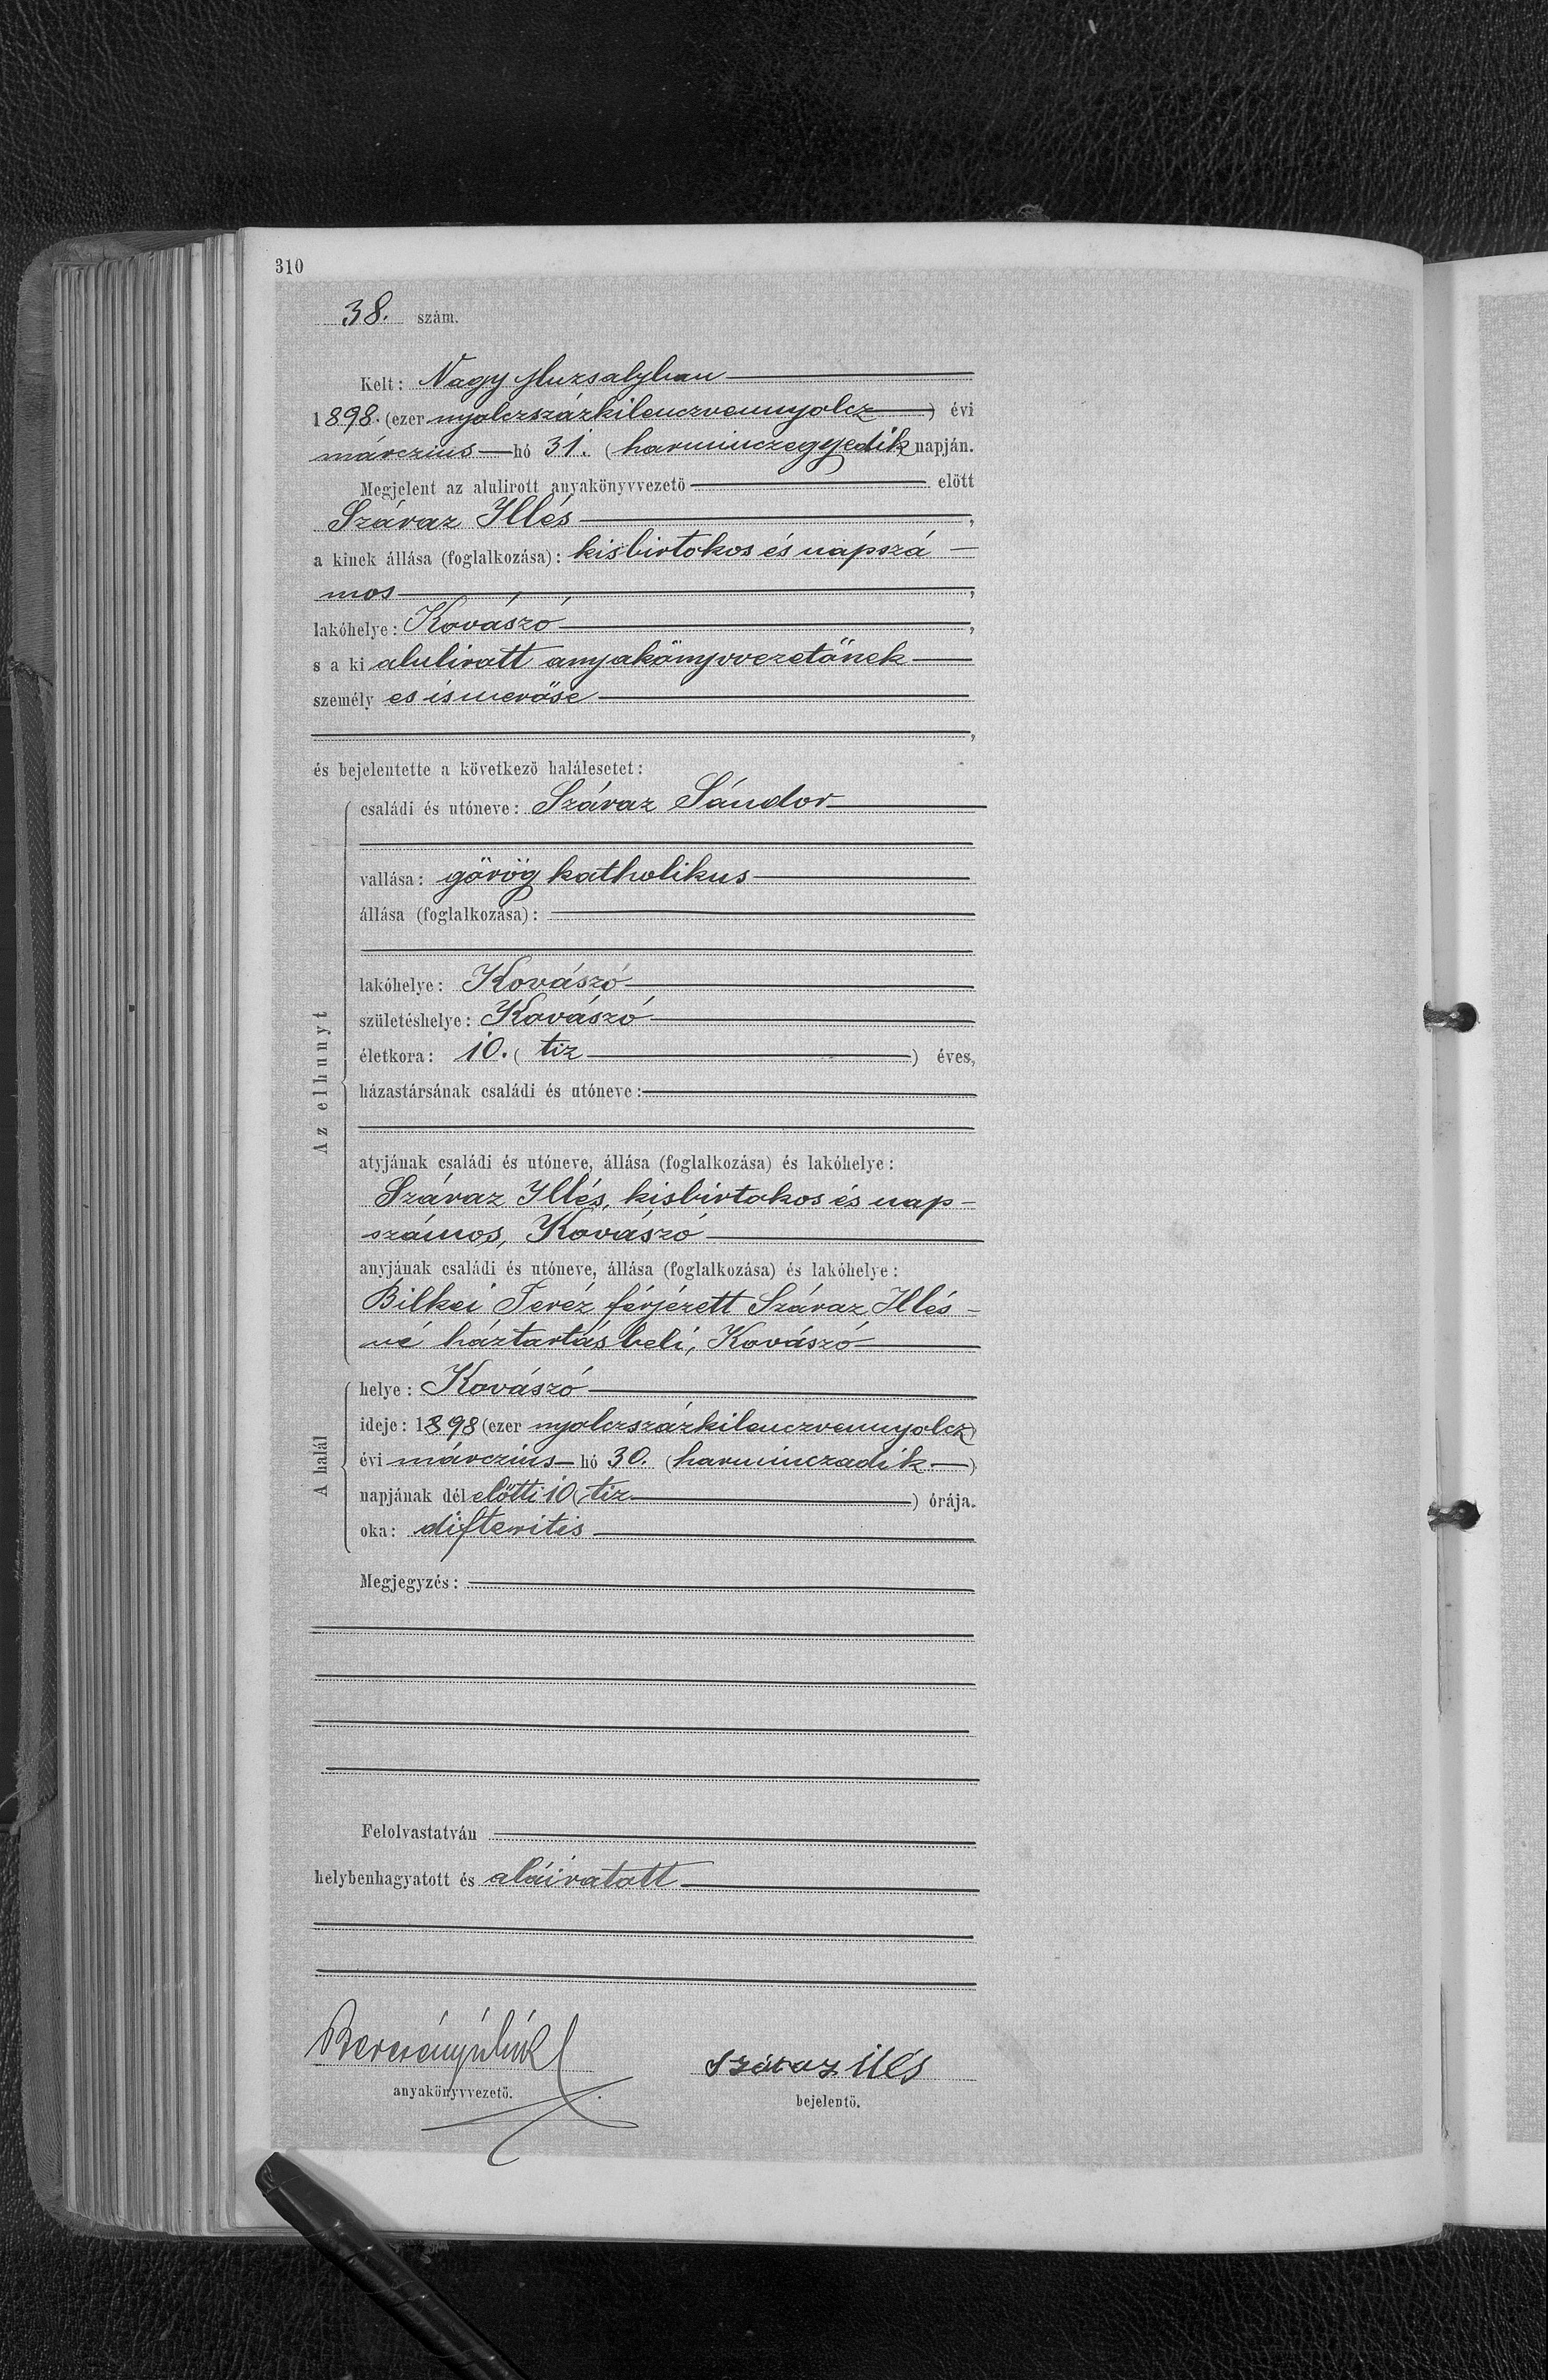 310
38. szám.
Kelt: Nagy Muzsalyban
1898. (ezer nyolczszázkilenczvennyolcz) évi
márczius hó 31. (harminczegyedik napján.
Megjelent az alulirott anyakönyvvezető előtt
Száraz Illés,
a kinek állása (foglalkozása): kisbirtokos és napszá-
mos,
lakóhelye: Kovászó,
s a ki alulirott anyakönyvvezetőnek
személy es ismerőse
,
és bejelentette a következő halálesetet:
Az elhunyt
családi és utóneve: Száraz Sándor
vallása: görög katholikus
állása (foglalkozása):
lakóhelye: Kovászó
születéshelye: Kovászó
életkora: 10. (tiz) éves,
házastársának családi és utóneve:
atyjának családi és utóneve, állása (foglalkozása) és lakóhelye:
Száraz Illés, kisbirtokos és nap-
számos, Kovászó
anyjának családi és utóneve, állása (foglalkozása) és lakóhelye:
Bilkei Teréz férjezett Száraz Illés-
né háztartásbeli, Kovászó
A halál
helye: Kovászó
ideje: 1898 (ezer nyolczszázkilenczvennyolcz)
évi márczius hó 30. (harminczadik)
napjának dél előtti 10 (tiz) órája.
oka: difteritis
Megjegyzés:
Felolvastatván
helybenhagyatott és aláiratott
anyakönyvvezető.
Száraz ilés
bejelentő.